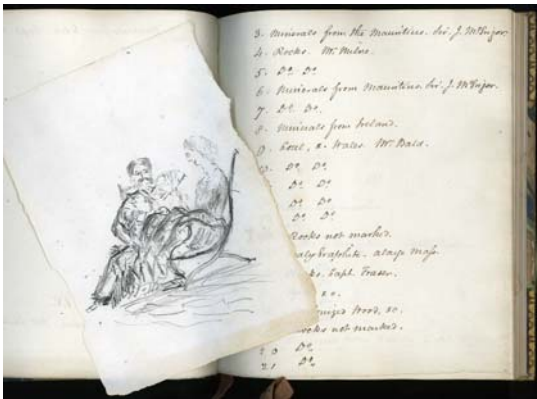 3. Minerals from the Mauritius. Sir. J. McGrigor
4. Rocks. Mr. Milne.
5. Do. Do.
6. Minerals from Mauritius. Sir. J. McGrigor.
7. Do. Do.
8. Minerals from Ireland.
9. Coal, & Wales. Mr. Bald.
10. Do. Do.
Do. Do.
Do. Do.
Do. Do.
Rocks not marked.
Graphite. a large mass.
Capt. Fraser.
Wood, &c.
Rocks not marked.
20 Do.
21 Do.